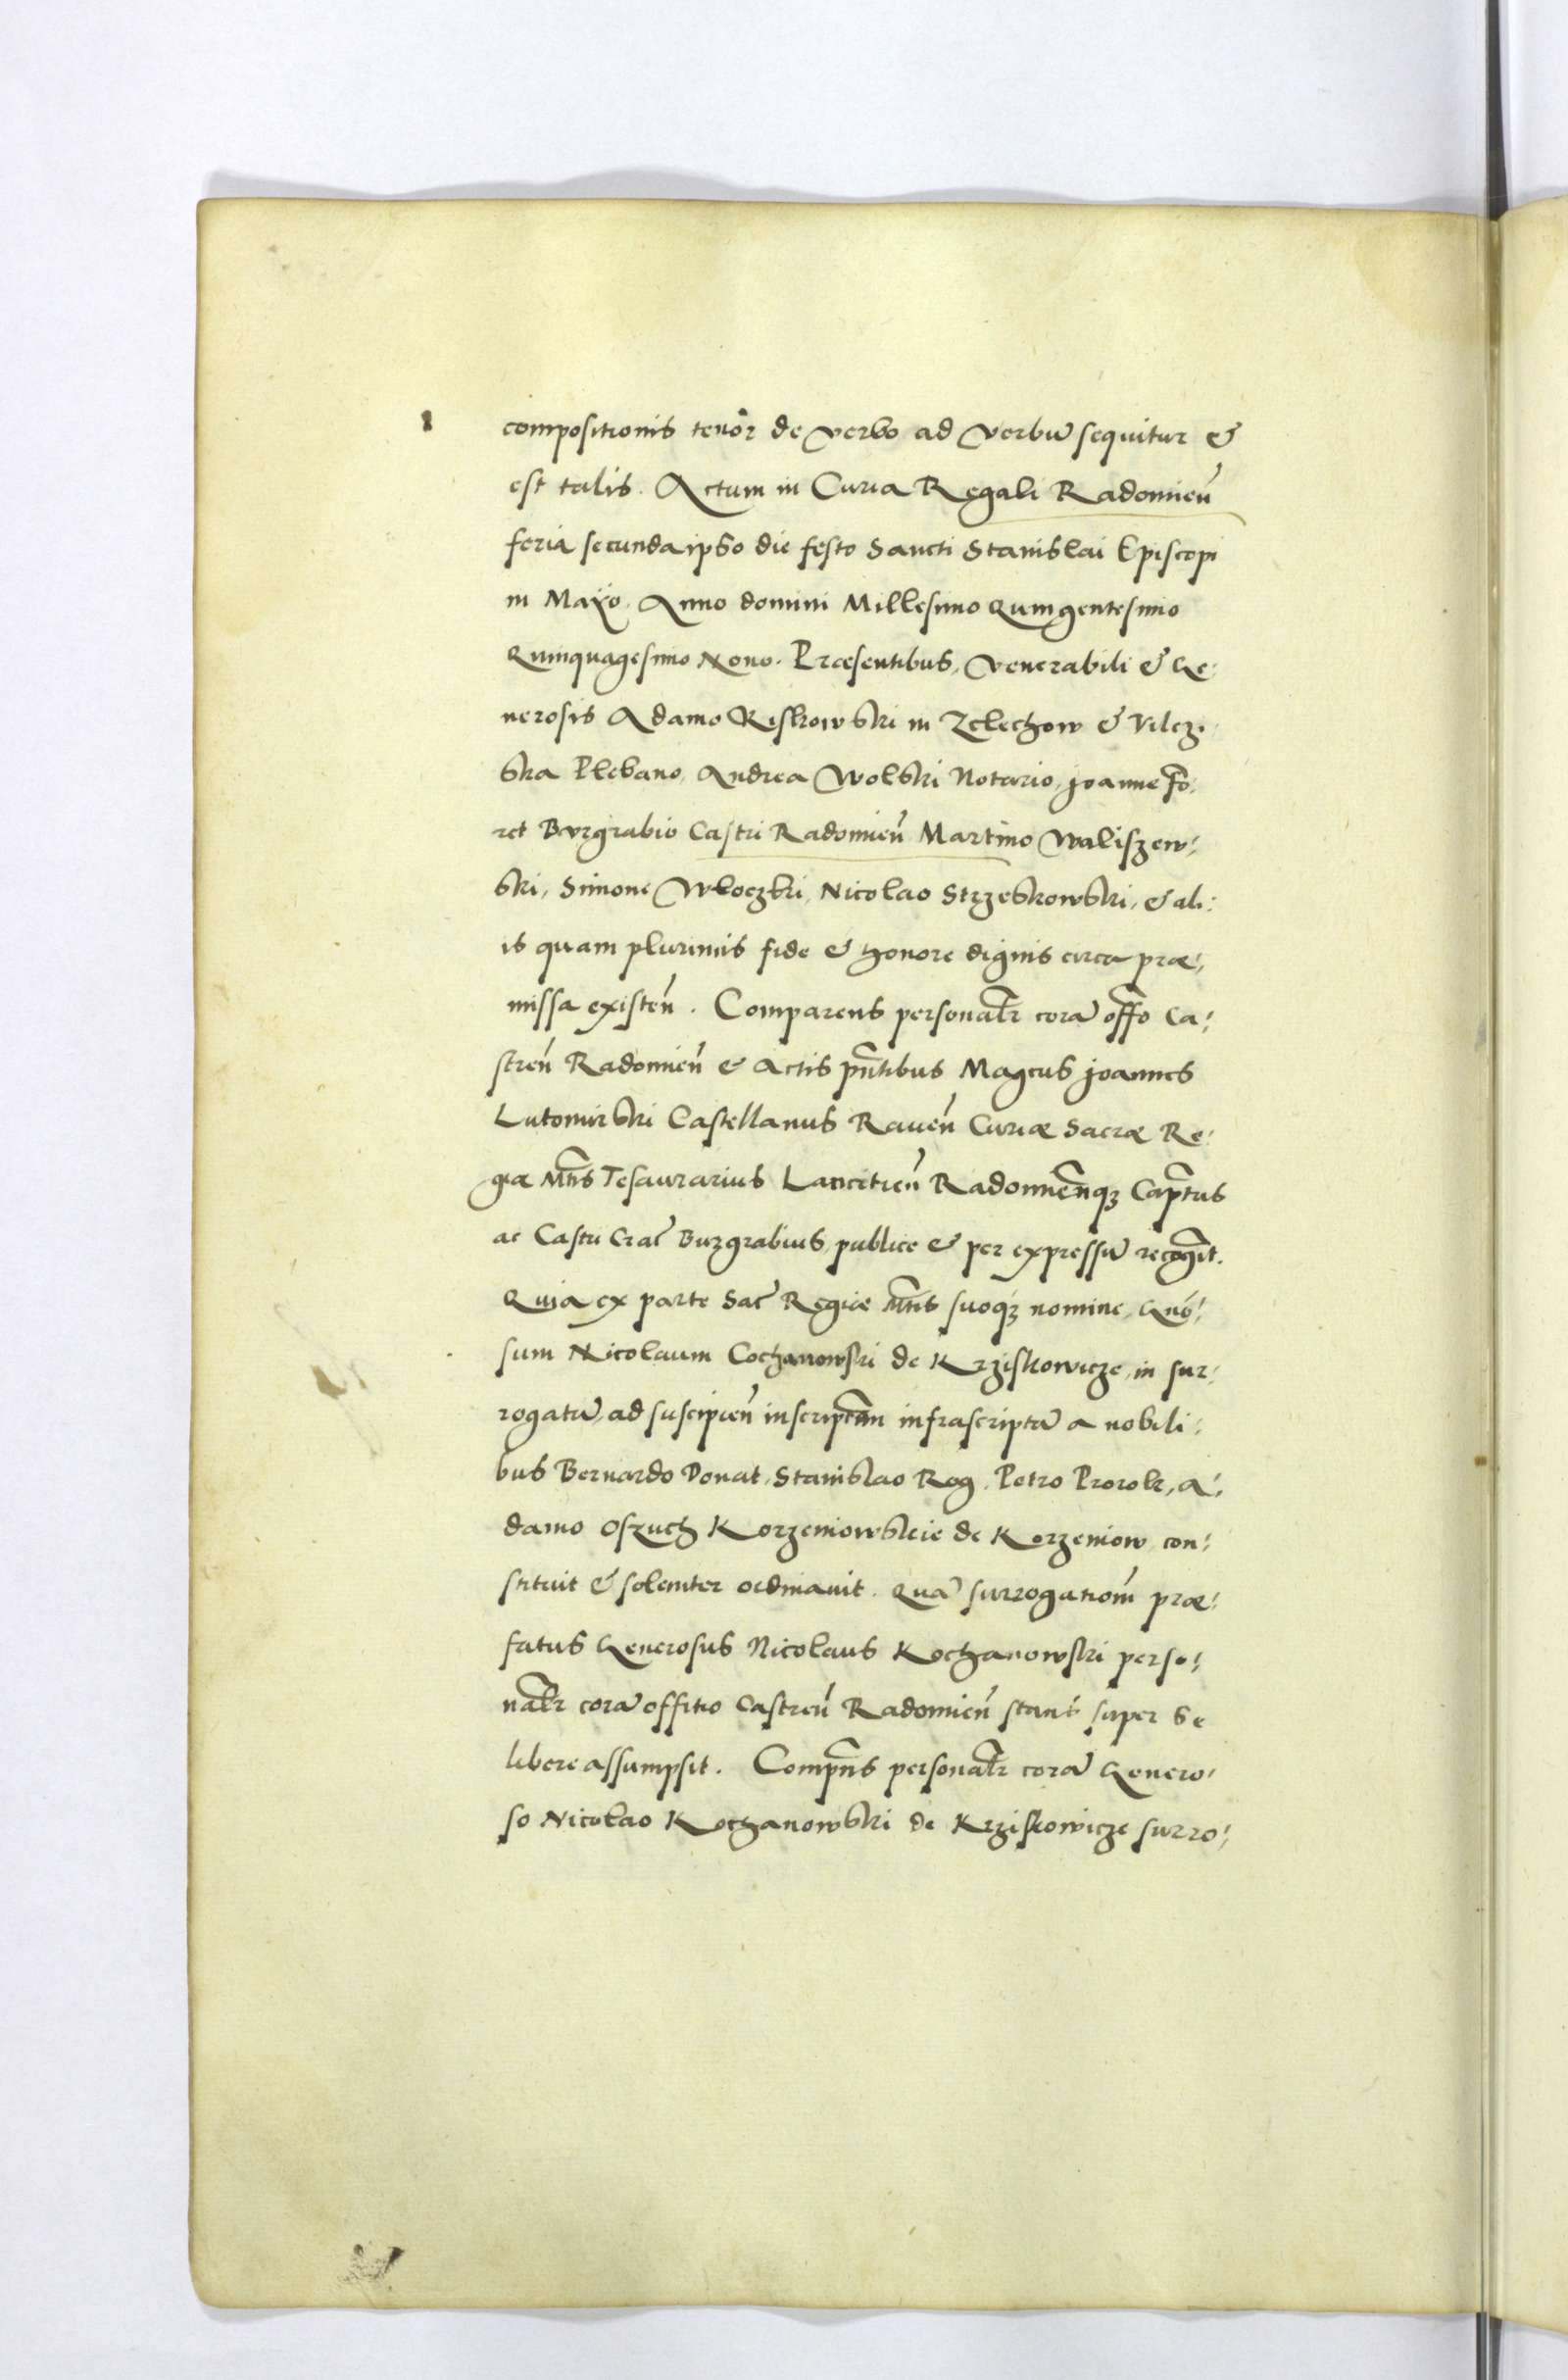 compositionis tenor de verbo ad verbũ sequitur &
est talis. Actum in Curia Regali Radomieñ
feria secunda ipso die festo Sancti Stanislai Episcopi
in Maÿo. Anno domini Millesimo Quingentesimo
Quinquagesimo Nono. Præsentibus, Venerabili & Ge:
nerosis Adamo Riskowski in Zelechow & Vilcz:
ska Plebano, Andrea Wolski Notario, Joanne Fo:
ret Burgrabio Castri Radomieñ Martino Waliszew:
ski, Simone Wloczki, Nicolao Strzeskowski, & ali:
is quam plurimis fide & honore dignis circa præ:
missa existeñ. Comparens personalr̃ corã offo Ca:
streñ Radomieñ & Actis pñtibus Magcus Joannes
Lutomirski Castellanus Raueñ Curiæ Sacræ Re:
giæ Mtis Tesaurarius Lancitieñ Radomieñqȝ Capitus
ac Castri Crac̃ Burgrabius, publice & per expressũ recogit.
Quia ex parte Sac̃ Regiæ Mtis suoqȝ nomine, Gñò:
sum Nicolaum Cochanowski de Krziskowicze, in sur:
rogatũ, ad suscipieñ inscriptam infrascriptã a nobili:
bus Bernardo Donat, Stanislao Rog, Petro Prorok, A:
damo Oszuch Korzeniowskie de Korzeniow, con:
stituit & solemter ordinauit. Quã surrogationẽ præ:
fatus Generosus Nicolaus Kochanowski perso:
nalr̃ corã offitio Castreñ Radomieñ stans super se
libere assumpsit. Compñs personalr̃ corã Genero:
so Nicolao Kochanowski de Krziskowicze surro: